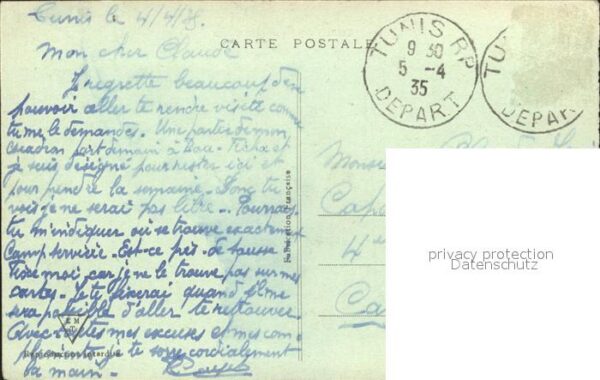 Tunis le 4/4/35
CARTE POSTALE
Mon cher Claude
Je regrette beaucoup d'en
pouvoir aller te rendre visite comme
tu me le demandes. Une partie de mon
escadron part demain à Bou-Ficha et
je suis désigné pour rester ici et
pour prendre la semaine. Donc tu
vois je ne serai pas libre. Pourrais
tu m'indiquer où se trouve exactement
Camp Servière. Est-ce près de Sousse.
moi, car je ne le trouve pas sur mes
cartes. Je te quand il me
sera possible d'aller te retrouver.
Avec toutes mes excuses et mes
je te serre cordialement
la main.
TUNIS RP
9 30
5 -4
35
DEPART
TU
DEPAR
Monsieur
Capo
4
Ca
Fabrication Française
EM
Reproduction interdite
privacy protection
Datenschutz